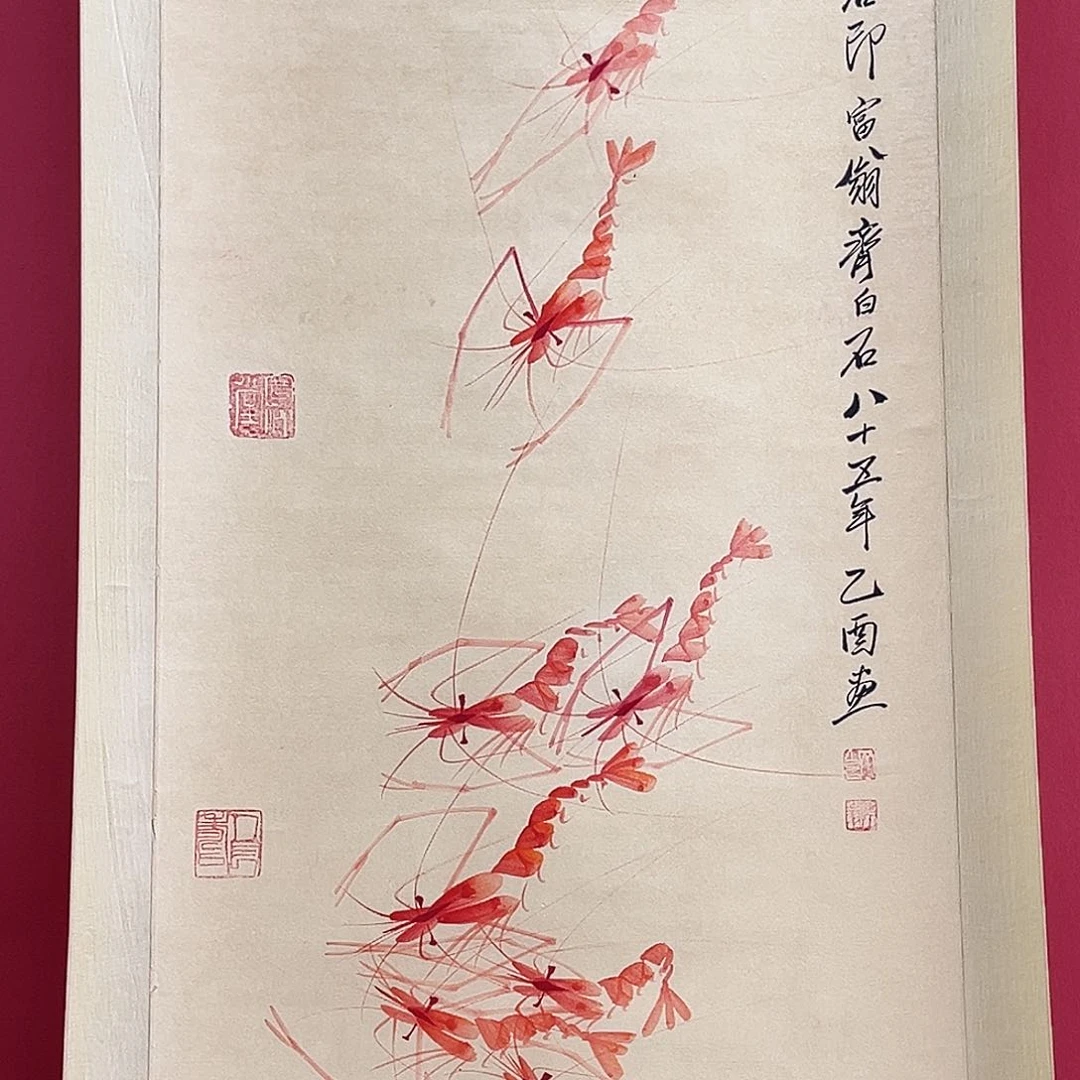 印富翁齊白石八十五年乙酉画